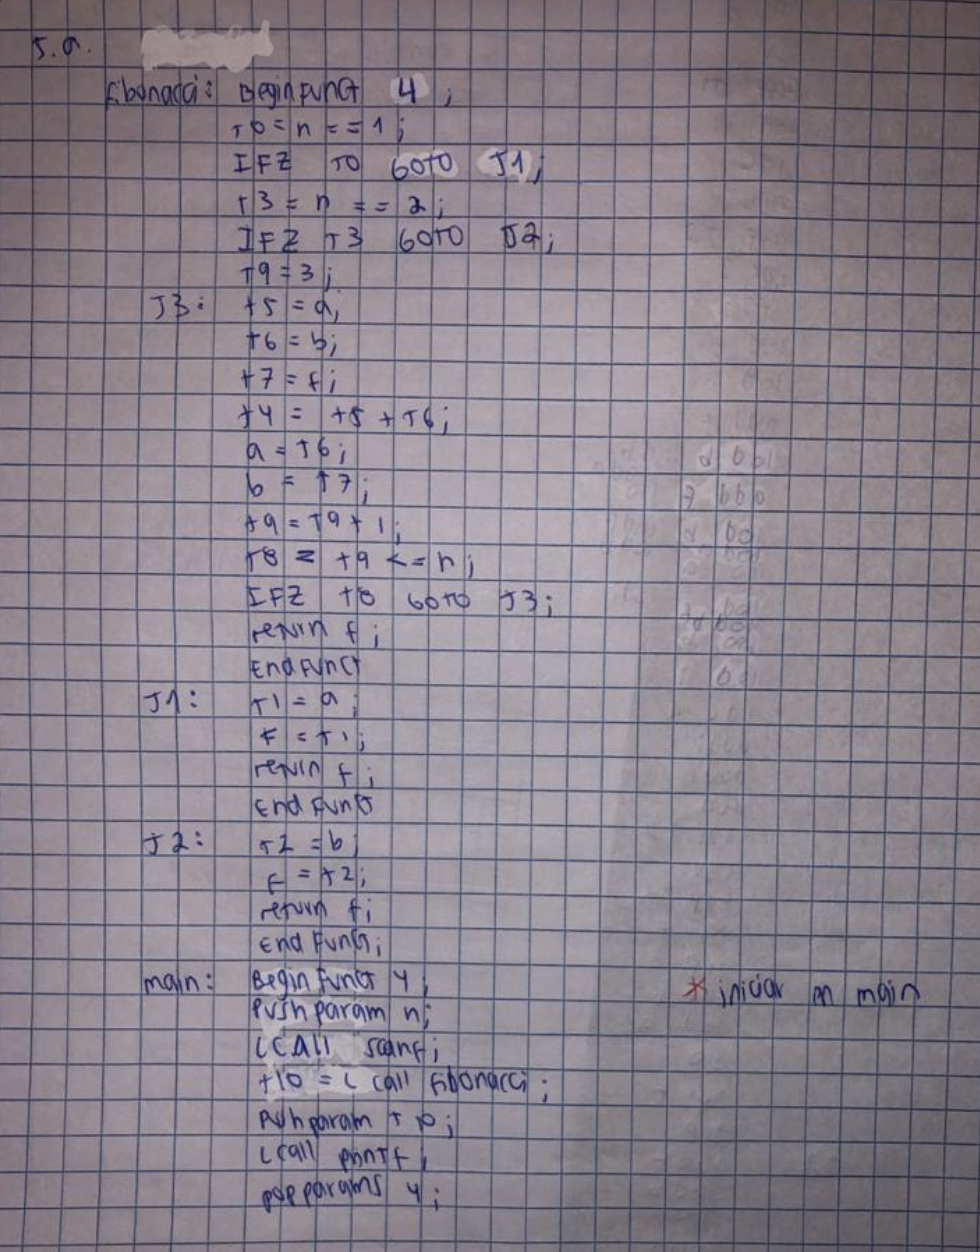 5.a.
fibonacci: Begin Funct 4;
T0 = n == 1;
IFZ T0 GOTO J1;
T3 = n == 2;
IFZ T3 GOTO J2;
T9 = 3;
J3: t5 = a;
t6 = b;
t7 = f;
t4 = t5 + T6;
a = T6;
b = T7;
t9 = T9 + 1;
T8 = t9 <= n;
IFZ t8 GOTO J3;
return f;
End Funct
J1: T1 = a;
F = T1;
return f;
End Funct
J2: T2 = b;
F = T2;
return f;
End Funct;
main: Begin Funct 4; * iniciar en main
Push param n;
LCAll scanf;
t10 = L call Fibonacci;
Push param T10;
Lcall printf;
pop params 4;